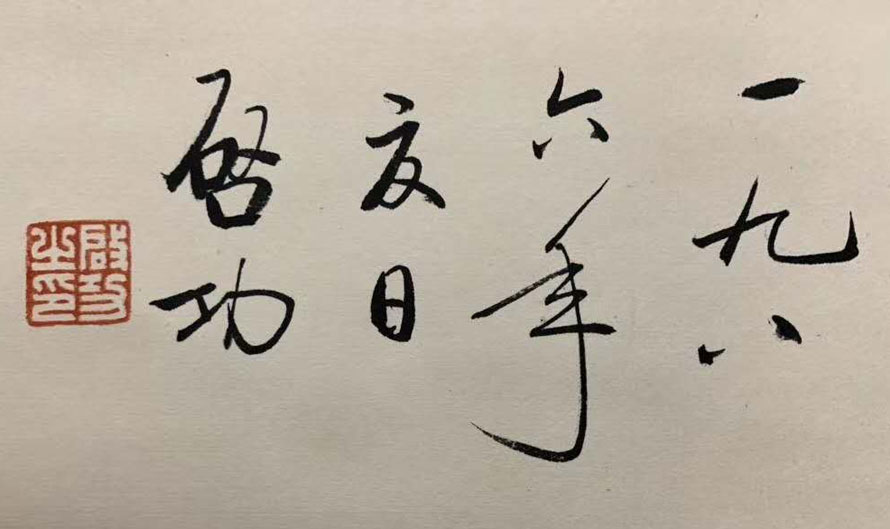 一九八
六年
夏日
启功
啟功之印